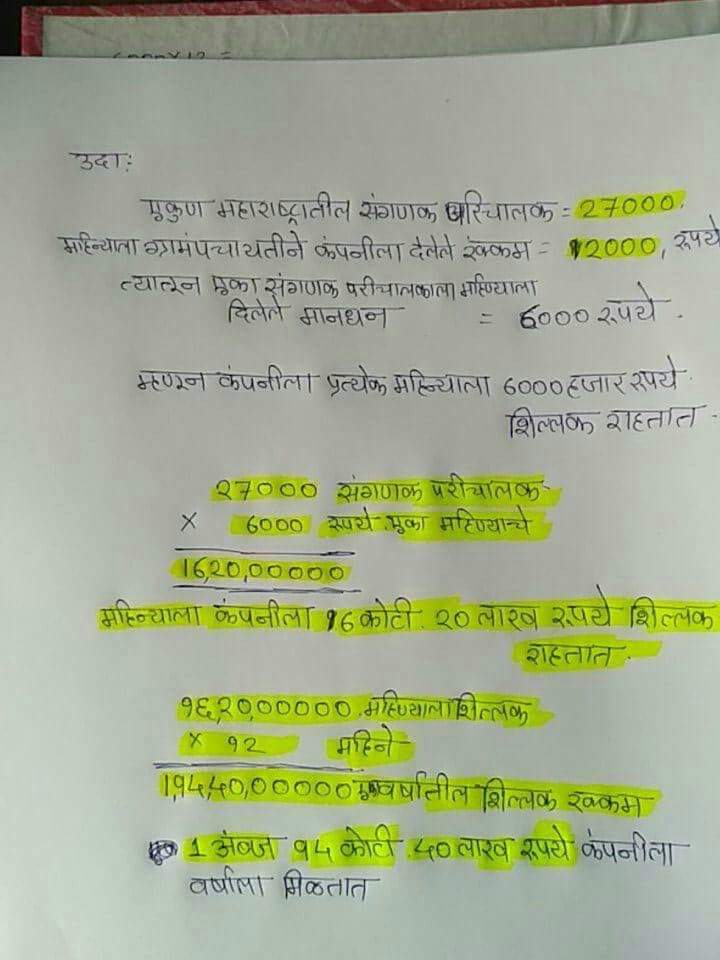 6000x12 =
उदा:
एकुण महाराष्ट्रातील संगणक परिचालक = 27000.
महिन्याला ग्रामंपचायतीने कंपनीला देलेले रक्कम = 12000, रूपये
त्यातून एका संगणक परीचालकाला महिण्याला
दिलेले मानधन = 6000 रूपये.
म्हणून कंपनीला प्रत्येक महिन्याला 6000 हजार रूपये.
शिल्लक राहतात.
27000 संगणक परीचालक
x 6000 रूपये एका महिण्याचे
16,20,00000
महिन्याला कंपनीला १6 कोटी. २० लाख रूपये शिल्लक
राहतात.
१६,२०,00000. महिण्याला शिल्लक
x १२ महिने
1,94,40,00000 एक वर्षातील शिल्लक रक्कम
1 अंब्ज ९4 कोटी. 40 लाख रूपये कंपनीला
वर्षाला मिळतात